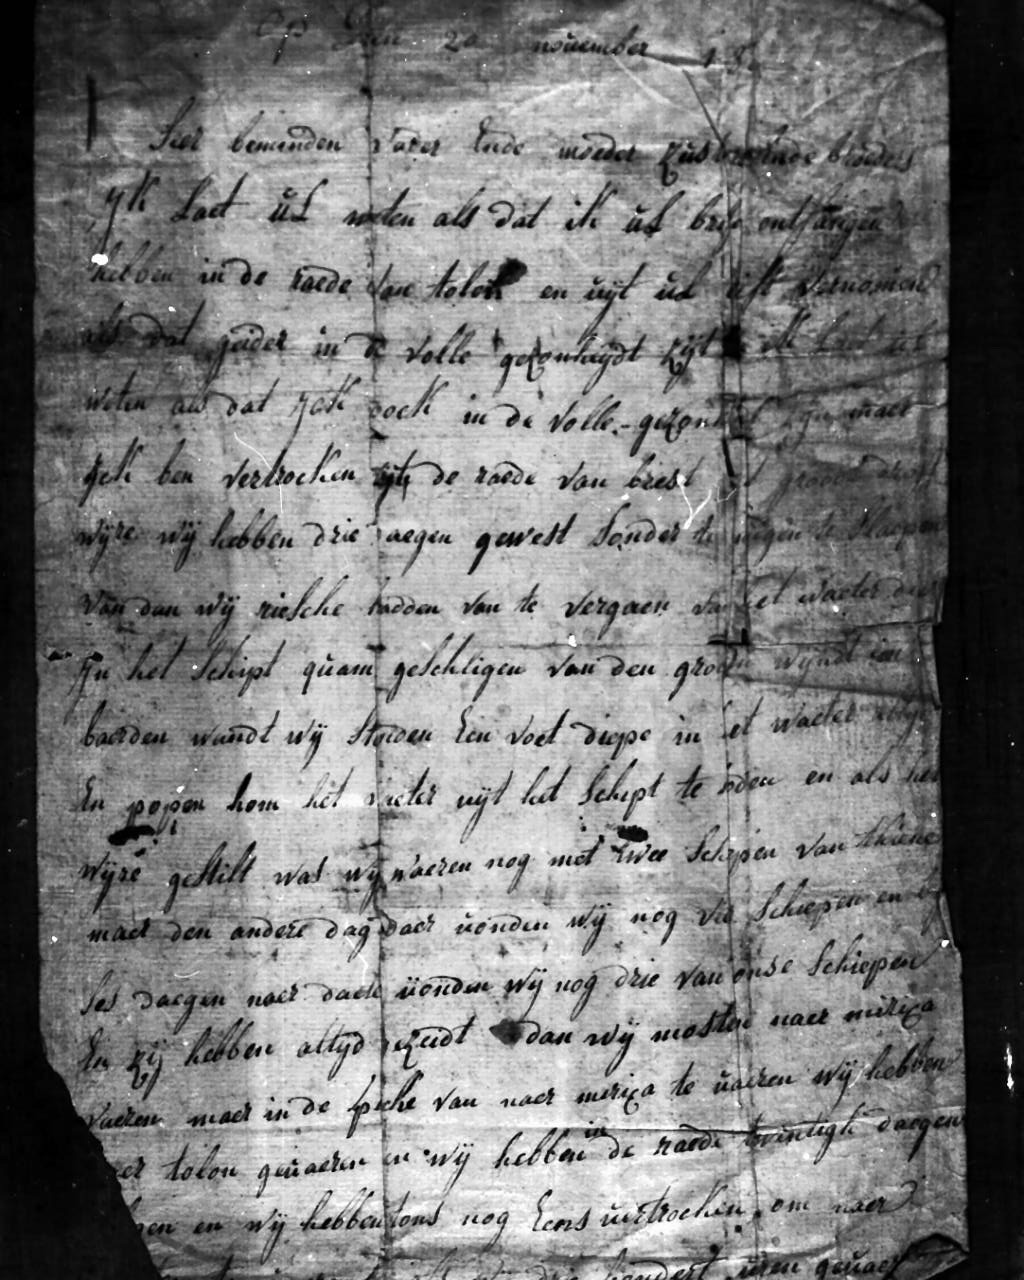 Op Den 20 november 18
Seer beminden vader Ende moeder zusters Ende broeders
Yk Laet ûL weten als dat ik ûL brife ontfangen
hebben in de raede van tolon en ûijt ûL vernomen
als dat geider in de volle gezonheydt zijt ik Laet uL
weten als dat yck oock in de volle gezonheyt zyn maer
yck ben vertrocken uyt de raede van brest
wyre wij hebben drie daegen gewest Sonder te mogen te slaepen
van dan wij riesche hadden van te vergaen van het waeter dat
In het Schipt quam geschligen van den grooten wyndt en
baerden wandt wij stoeden Een voet diepe in het waeter
En popen hom het waeter uyt het Schipt te
wyre gestilt was wij waeren nog met twee Schepen van
maer den andere dag daer vonden wij nog vie Schiepen en op
ses daegen naer daete vonden wij nog drie van onse Schiepen
En zij hebben altyd gezeidt dan wij mosten naer merica
vaeren maer in de plcke van naer merica te vaeren wij hebben
naer tolon gevaeren en wij hebben in de raede twintigh daegen
en wij hebben tons nog Eens vertrocken om naer
drie hondert uren gevaeren